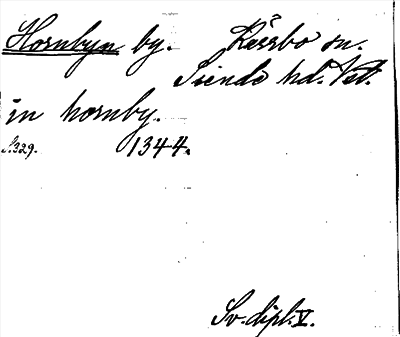 Hornbyn by. Kärrbo sn.
Siende hd. Vstl.
in hornby.
S.329. 1344.
Sv. dipl. V.